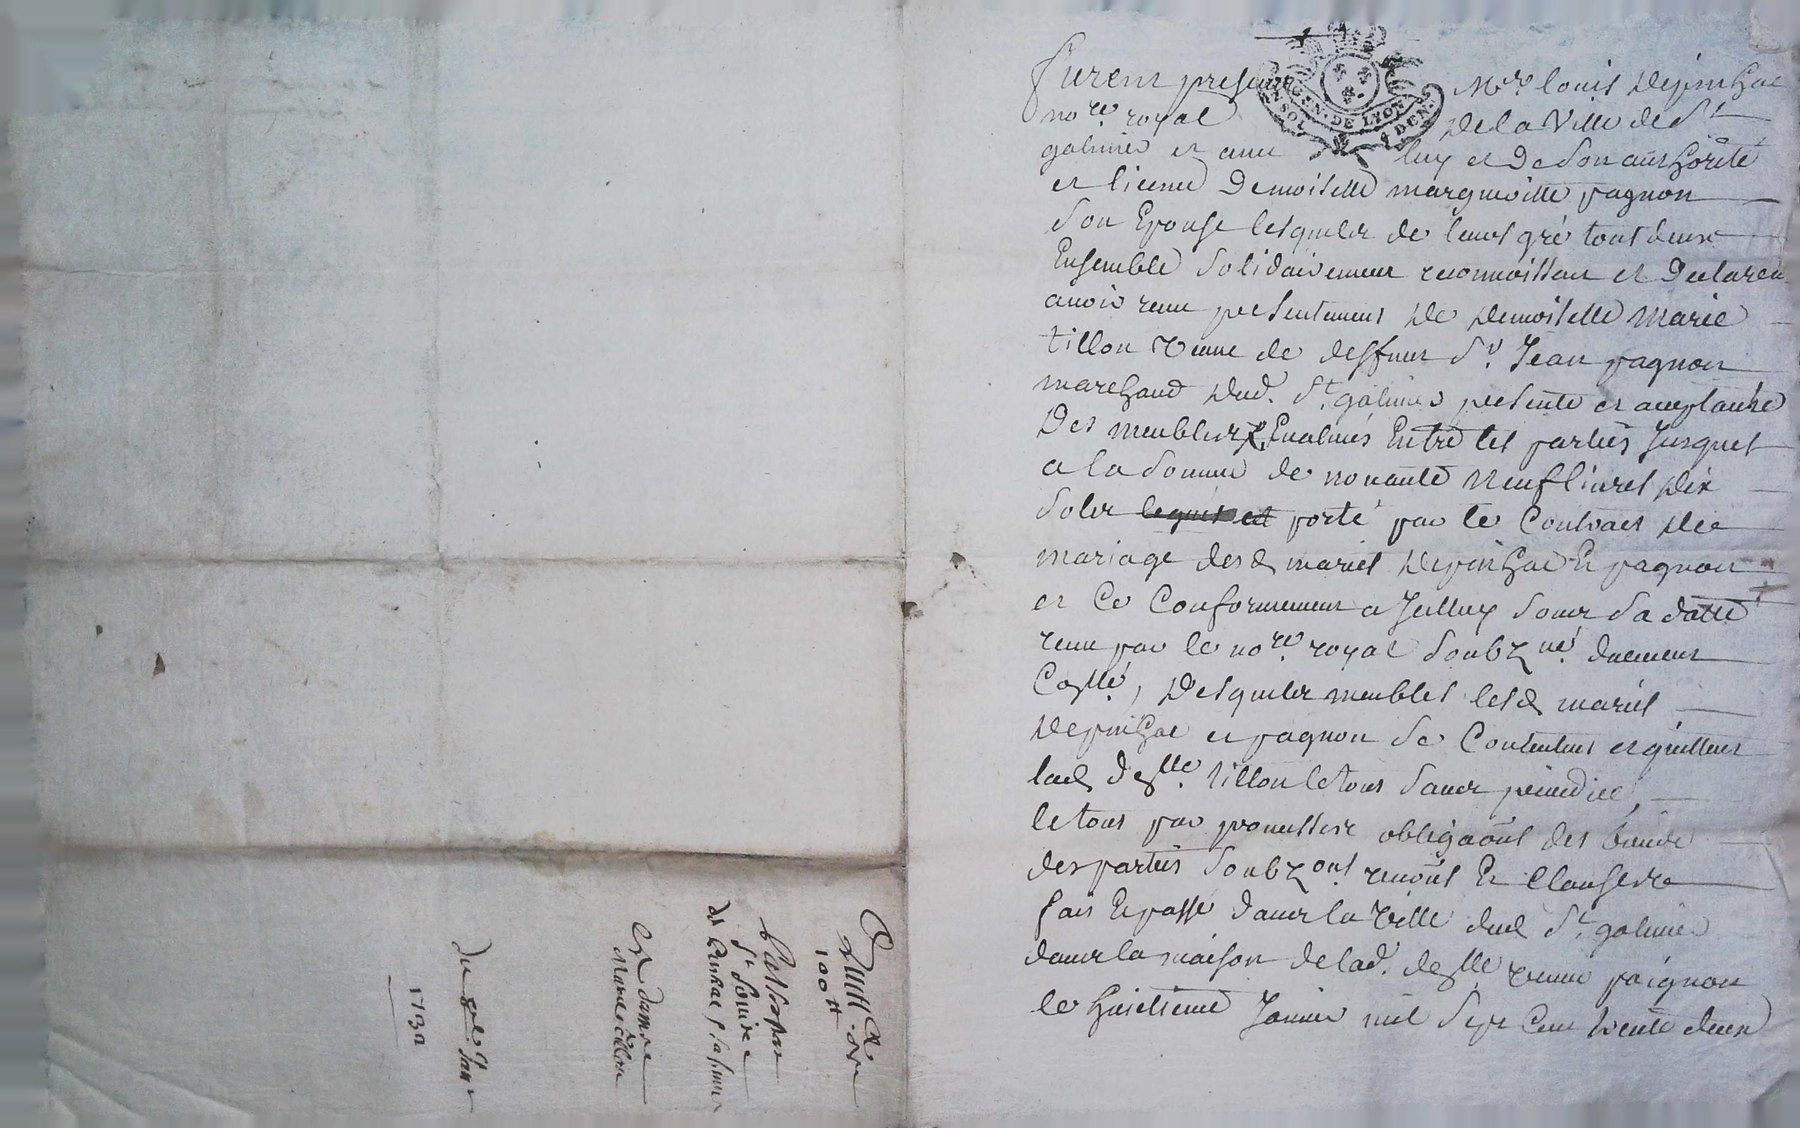 Furent presents Mre louis depinhac
nore royal de la Ville de St
galmier et avec luy et de son authorité
et licence Demoiselle margueritte pagnon
son Epouse lesquels de leurs gré tout deux
Ensemble solidairement reconnoissent et declarent
avoir receu presentement de demoiselle marie
tillon veuve de deffunt Sr. Jean pagnon
marchand dud. St. galmier presente et acceptante
Des meubles Evalués Entre les parties Jusques
a la somme de nonante neuf livres dix
sols porté par le Contract de
mariage desd mariés depinhac Et pagnon
et Ce Conformement a Jcelluy sous sa datte
receu par le nore. royal soubz né. duement
Collé, desquels meubles lesd mariés
depinhac et pagnon se Contentent et quittent
lad delle. tillon le tous sans prejudice,
le tous par promesses obligaons des biens
des parties soubzons renons Et clauses
fait Et passé dans la Ville dud St. galmier
dans la maison de lad. delle veuve paignon
le huictieme Janvier mil sept Cent trente deux
Quittce
100tt
St Louis
de
Et damlle
Marie tillon
Du 8e Janr
1732